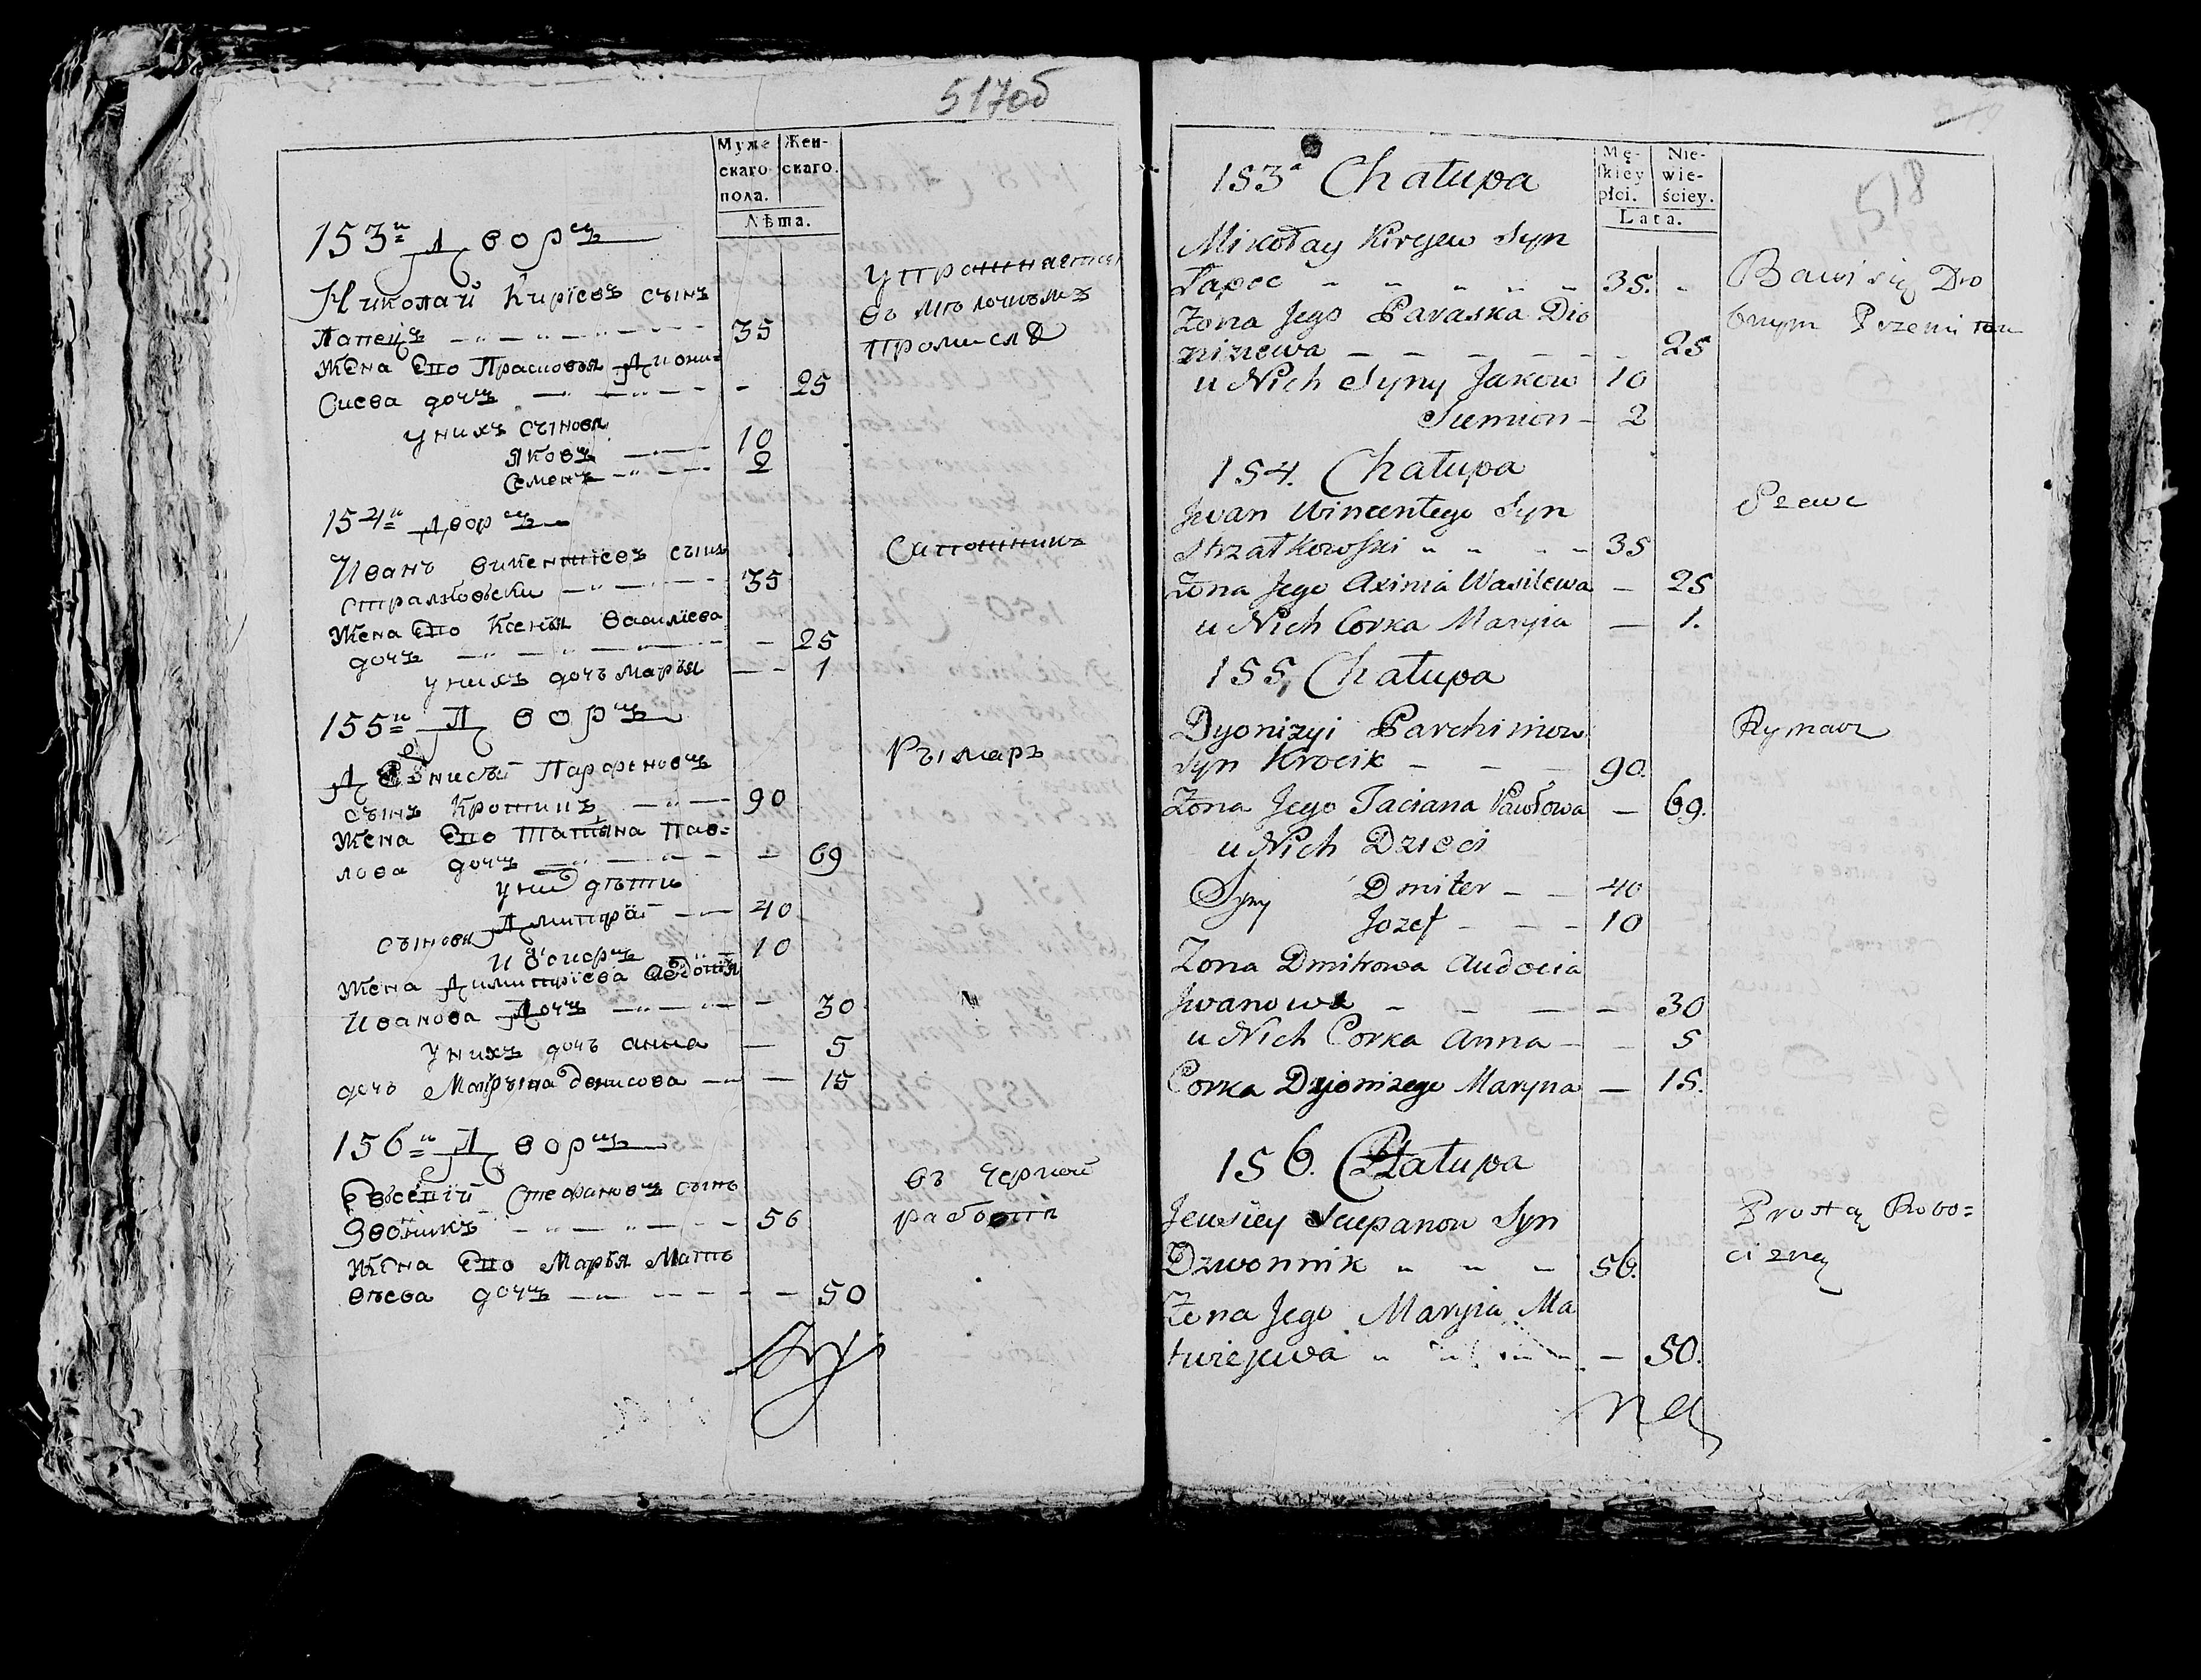 517об
Муже
скаго
пола.
Жен-
скаго.
Лѣта.
153й Дворъ
Николай Кирїевъ сынъ
Лапецъ 35
Жена Его Прасковья Диони-
сиева дочъ 25
у нихъ сынова
Яковъ 10
Семенъ 2
упражнается
въ мелочномъ
промыслѣ
154й Дворъ
Иванъ Викентїевъ сынъ
Стралковски 35
Сапошникъ
Жена Его Ксенья Василїева
дочь 25
у нихъ дочь Марья 1
155й Дворъ
Денисѣй Парфеновъ
сынъ Кротикъ 90
Рымаръ
Жена Его Татьяна Пав-
лова дочъ 69
у них дѣти
сынови Дмитрїй 40
Иосифъ 10
Жена Димитрїева Авдотїя
Иванова Дочъ 30
у нихъ дочь анна 5
дочь Матрына денисова 15
156й Дворъ
Евсѣгїй Стефановъ сынъ
Звонникъ 56
въ черной
работѣ
Жена Его Марья Матъ
вѣева дочъ 50
518
Mę-
skiey
płci.
Nie-
wie-
ściey.
Lata.
153a Chałupa
Mikołay Kirjew Syn
Łapec 35.
Bawi się Dro
bnym Przemisłem
Żona Jego Paraska Dio
niziewa 25
u Nich Syny Jakow 10
Siemion 2
154. Chałupa
Iwan Wincentego Syn
Strzałkowski 35
Szewc
Żona Jego Axinia Wasilewa 25
u Nich Corka Maryia 1.
155. Chałupa
Dyonizyi Parchimow
Syn Krocik 90.
Rymarz
Żona Jego Taciana Pawłowa 69.
u Nich Dzieci
Syny Dmiter 40
Jozef 10
Żona Dmitrowa Audocia
Iwanowa 30
u Nich Corka Anna 5
Corka Dyonizego Maryna 15.
156. Chałupa
Jewsiey Sciepanow Syn
Dzwonnik 56.
Prostą Robo=
cizną
Żona Jego Maryia Ma
twiejewa 50.